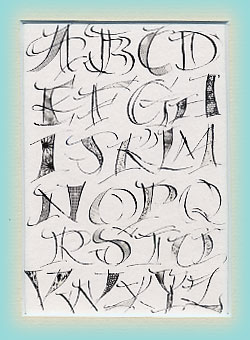 ABCD
EFGH
IJKLM
NOPQ
RSTU
VWXYZ